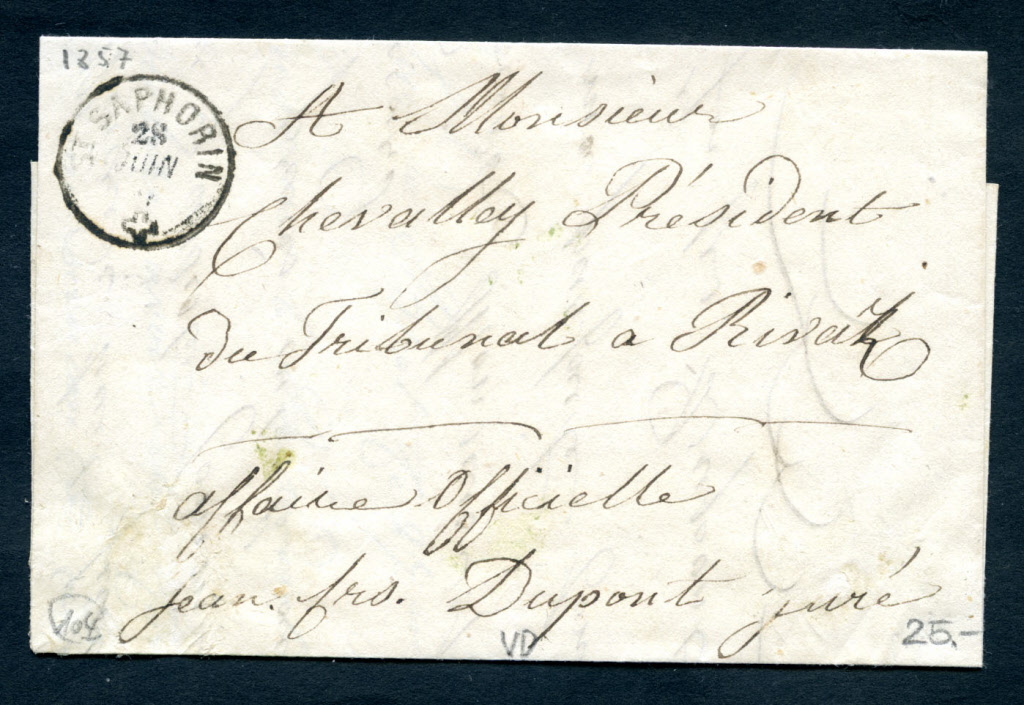 1857
ST SAPHORIN
28
JUIN
A Monsieur
Chevalley Président
du Tribunal a Rivaz
affaire Officielle
jean. frs. Dupont juré
VD
25.-